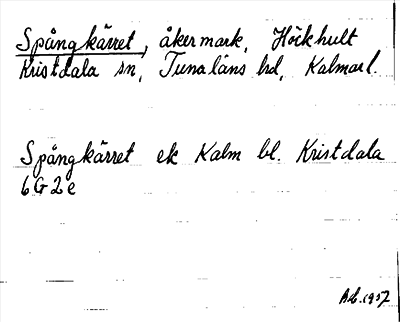 Spångkärret, åkermark, Höckhult
Kristdala sn, Tunaläns hd, Kalmar l.
Spångkärret ek Kalm bl. Kristdala
6G2e
Ad. 1957